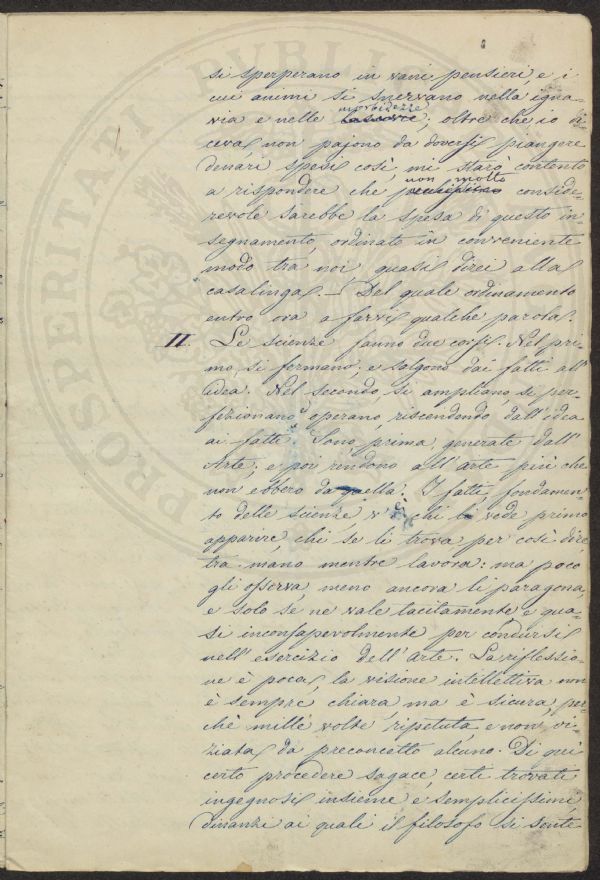 si sperperano in vani pensieri e i
cui animi si snervano nella igna-
via e nelle morbidezze; oltre che io di
ceva non pajono da doversi piangere
denari spesi così, mi starò contento
a rispondere che non molto conside-
revole sarebbe la spesa di questo in-
segnamento, ordinato in conveniente
modo tra noi quasi direi alla
casalinga. — Del quale ordinamento
entro ora a farvi qualche parola.
II. Le scienze fanno due corsi. Nel pri-
mo, si formano, e salgono dai fatti all'
idea. Nel secondo, si ampliano, si per-
fezionano, operano, riscendendo dall'idea
ai fatti. Sono prima, generate dall'
Arte; e poi rendono all'arte più che
non ebbero da quella. I fatti, fondamen-
to delle scienze, v'è chi li vede primo
apparire, chi se li trova per così dire
tra mano mentre lavora: ma poco
gli osserva, meno ancora li paragona,
e solo se ne vale tacitamente e qua-
si inconsapevolmente per condursi
nell'esercizio dell'Arte. La riflessio-
ne è poca, la visione intellettiva non
è sempre chiara, ma è sicura, per-
chè mille volte ripetuta, e non vi-
ziata da preconcetto alcuno. Di qui
certo procedere sagace, certi trovati
ingegnosi insieme e semplicissimi
dinanzi ai quali il filosofo si sente
PROSPERITATI PUBLIC